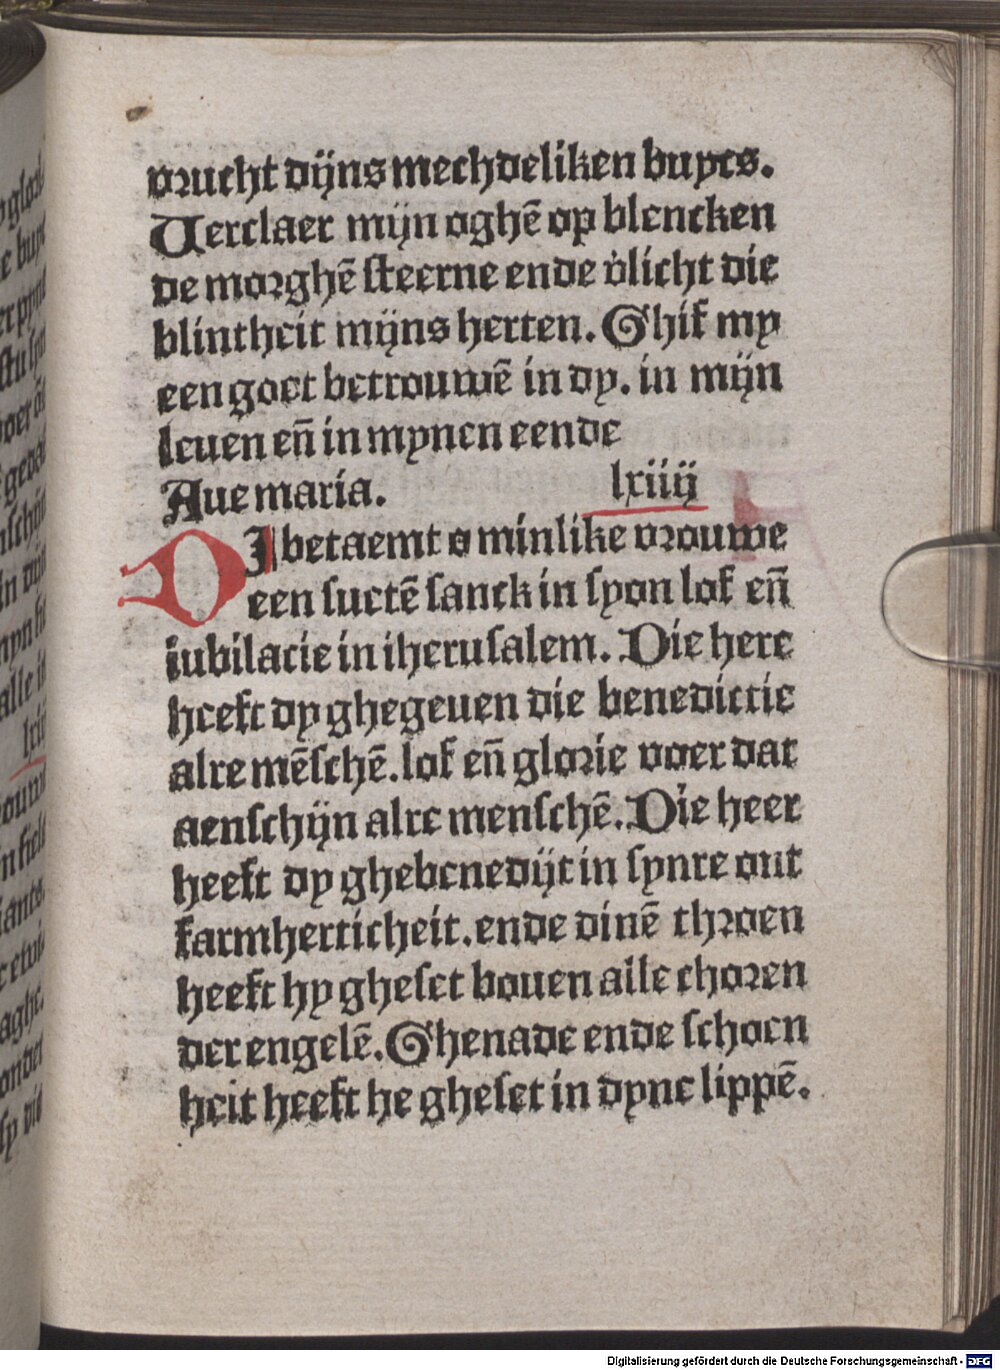 vrucht dijns mechdeliken buycs.
Uerclaer mijn oghē op blencken
de morghē steerne ende v̄licht die
blintheit mijns herten. Ghif my
een goet betrouwē in dy. in mijn
leuen en̄ in mynen eende
Aue maria. lxiiij
DI betaemt o minlike vrouwe
een suetē sanck in syon lof en̄
iubilacie in iherusalem. Die here
heeft dy ghegeuen die benedictie
alre mēschē. lof en̄ glorie voer dat
aenschijn alre menschē. Die heer
heeft dy ghebenedijt in synre ont
farmherticheit. ende dinē throen
heeft hy gheset bouen alle choren
der engelē. Ghenade ende schoen
heit heeft he gheset in dyne lippē.
Digitalisierung gefördert durch die Deutsche Forschungsgemeinschaft - DFG